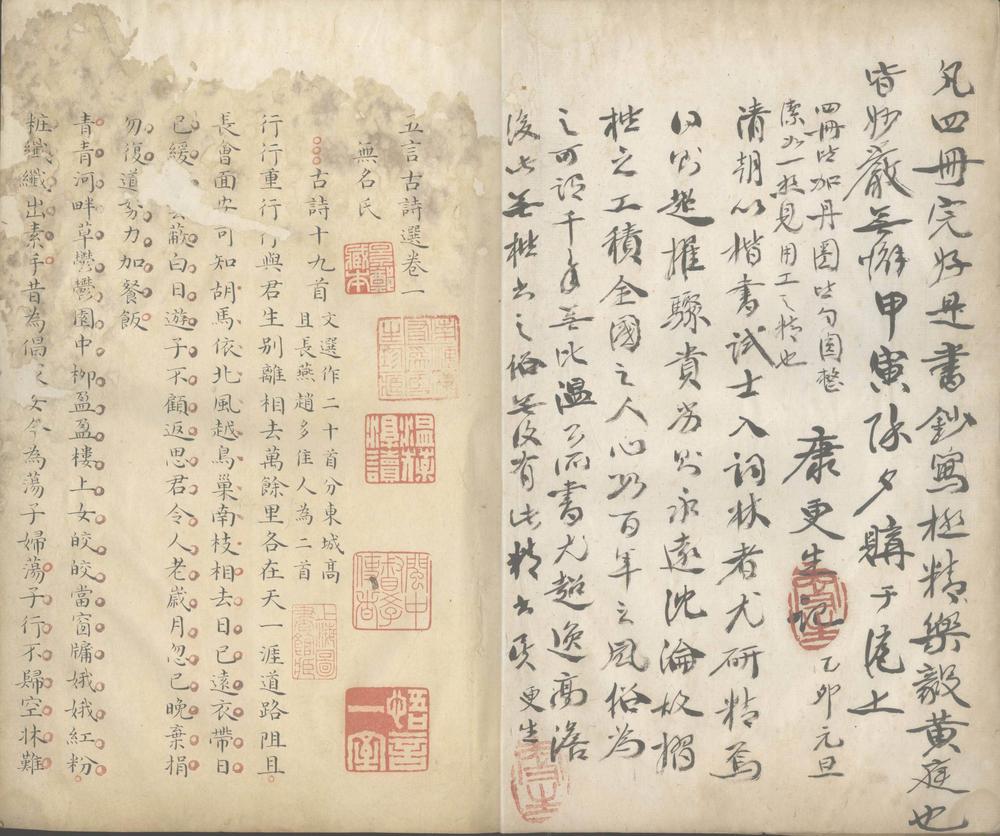 凡四冊完好思書鈔寫極精樂毅黃庭也
皆妙嚴無懈甲寅除夕購于滬上
四冊皆加丹圈皆勻圓整
潔如一想見用工之精也
康更生記
乙卯元旦
清朝以楷書試士入詞林者尤研精焉
公則超擢驟貴劣則永遠沈淪故摺
楷之工積全國之人心數百年之風俗為
之可謂千年無比溫公所書尤超逸高澹
後此無楷書之俗無復有此精書矣 更生
五言古詩選卷一
無名氏
古詩十九首
文選作二十首分東城高
且長燕趙多佳人為二首
行行重行行與君生別離相去萬餘里各在天一涯道路阻且
長會面安可知胡馬依北風越鳥巢南枝相去日已遠衣帶日
已緩浮雲蔽白日遊子不顧返思君令人老歲月忽已晚棄捐
勿復道努力加餐飯
青青河畔草鬱鬱園中柳盈盈樓上女皎皎當窗牖娥娥紅粉
粧纖纖出素手昔為倡家女今為蕩子婦蕩子行不歸空牀難
上海圖
書館藏